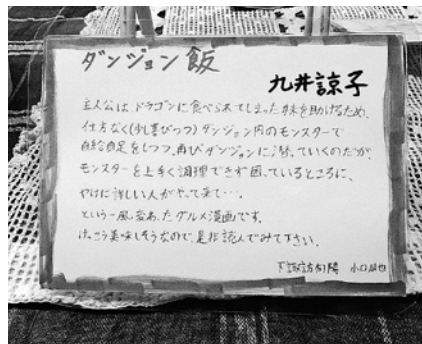 ダンジョン飯
九井諒子
主人公は、ドラゴンに食べられてしまった妹を助けるため、
仕方なく(少し喜びつつ)ダンジョン内のモンスターで
自給自足をしつつ、再びダンジョンに潜っていくのだが、
モンスターを上手く調理できず困っているところに、
やけに詳しい人がやって来て…。
という一風変わったグルメ漫画です。
けっこう美味しそうなので、是非読んでみて下さい。
下諏訪向陽 小口